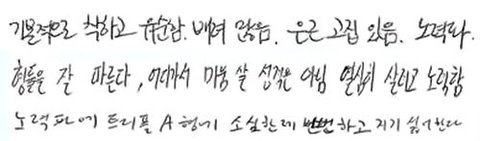 기본적으로 착하고 유순함. 배려 많음. 은근 고집 있음. 노력파.
형들을 잘 따른다, 어디가서 미움 살 성격은 아님 열심히 살려고 노력함
노력파에 트리플 A형에 소심한데 뻔뻔하고 지기 싫어한다